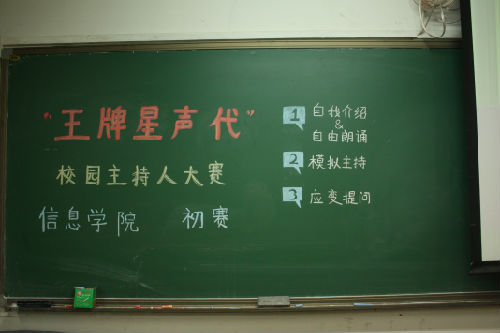 “王牌星声代”
校园主持人大赛
信息学院 初赛
1 自我介绍
&
自由朗诵
2 模拟主持
3 应变提问